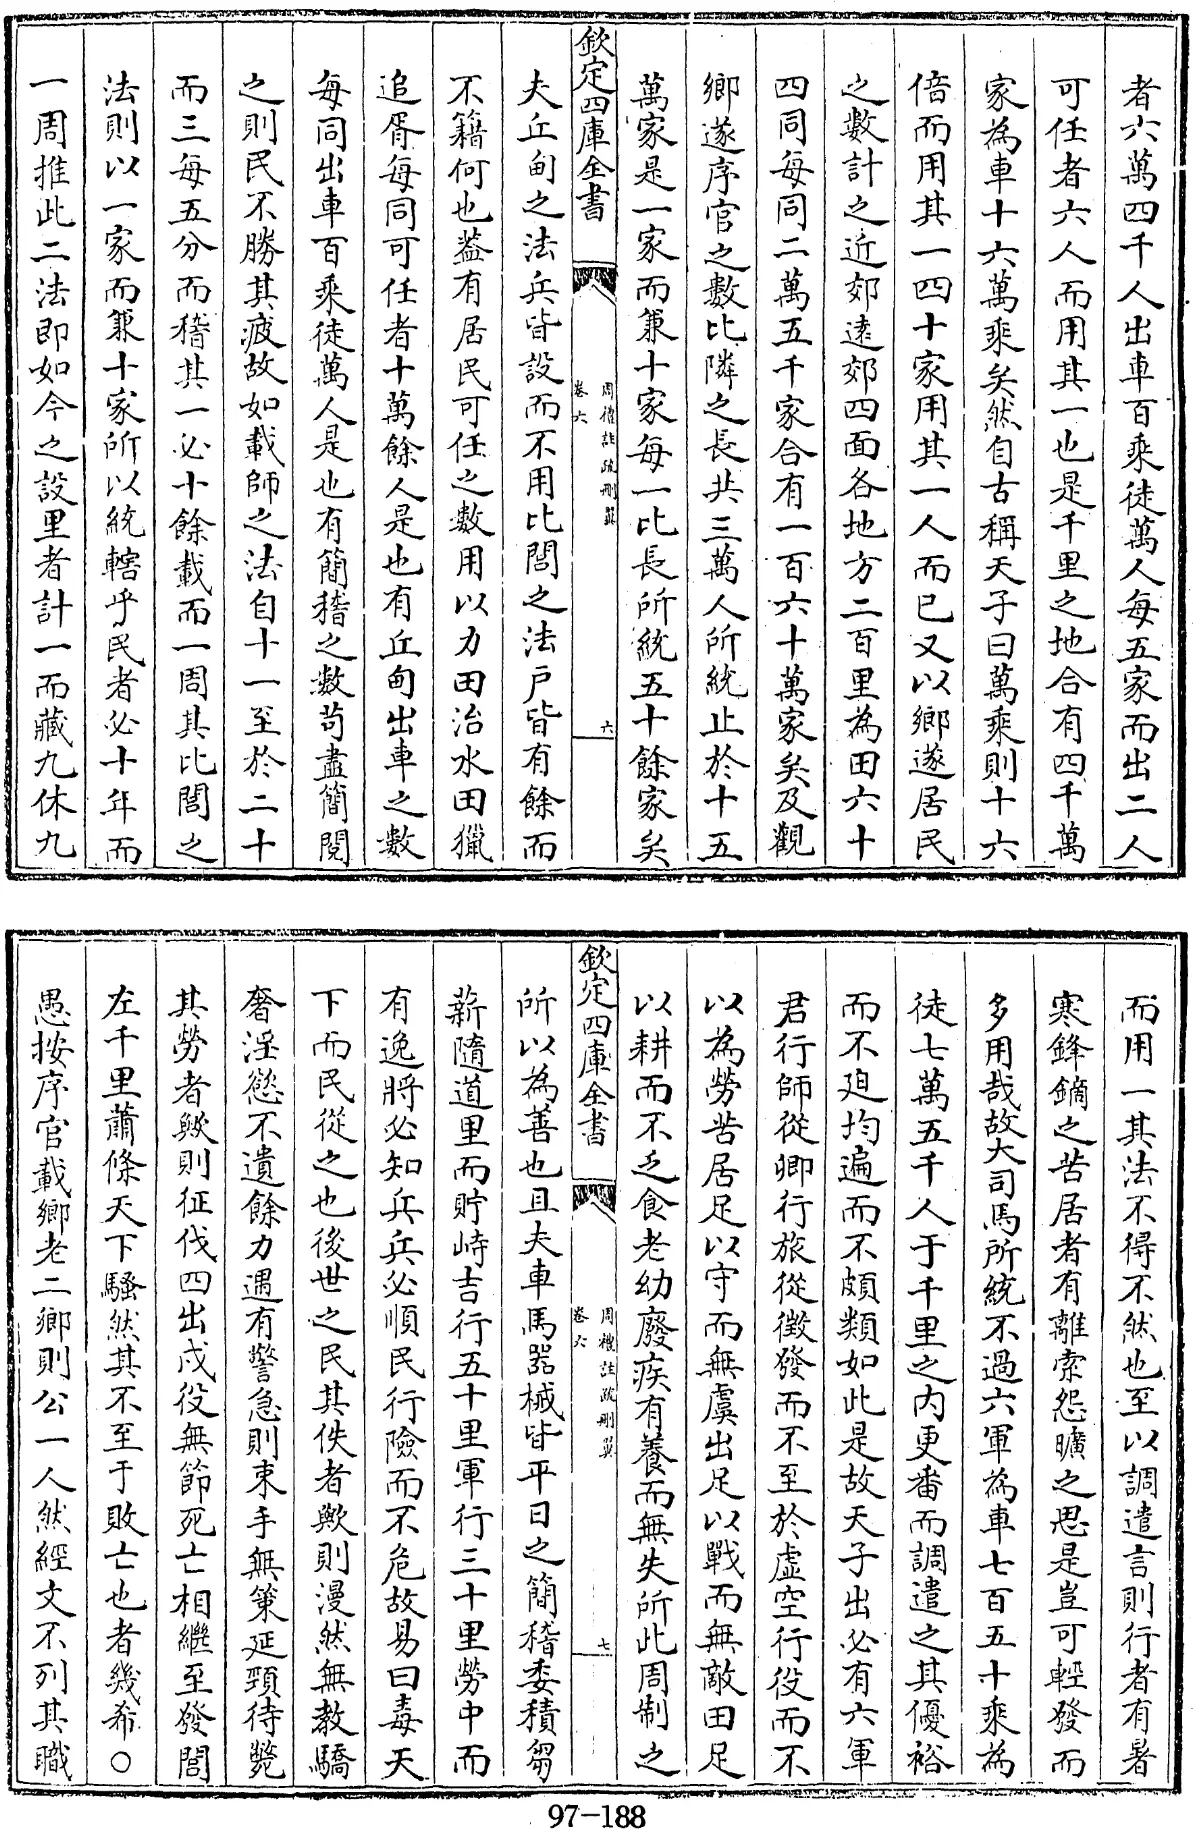 者六萬四千人出車百乘徒萬人每五家而出二人
可任者六人而用其一也是千里之地合有四千萬
家為車十六萬乘矣然自古稱天子曰萬乘則十六
倍而用其一四十家用其一人而已又以鄉遂居民
之數計之近郊遠郊四面各地方二百里為田六十
四同每同二萬五千家合有一百六十萬家矣及觀
鄉遂序官之數比隣之長共三萬人所統止於十五
萬家是一家而兼十家每一比長所統五十餘家矣
欽定四庫全書
周禮註疏刪翼
卷六
六
夫丘甸之法兵皆設而不用比閭之法戶皆有餘而
不籍何也葢有居民可任之數用以力田治水田獵
追胥每同可任者十萬餘人是也有丘甸出車之數
每同出車百乘徒萬人是也有簡稽之數苟盡簡閱
之則民不勝其疲故如載師之法自十一至於二十
而三每五分而稽其一必十餘載而一周其比閭之
法則以一家而兼十家所以統轄乎民者必十年而
一周推此二法即如今之設里者計一而藏九休九
而用一其法不得不然也至以調遣言則行者有暑
寒鋒鏑之苦居者有離索怨曠之思是豈可輕發而
多用哉故大司馬所統不過六軍為車七百五十乘為
徒七萬五千人于千里之內更番而調遣之其優裕
而不廹均遍而不頗類如此是故天子出必有六軍
君行師從卿行旅從徵發而不至於虛空行役而不
以為勞苦居足以守而無虞出足以戰而無敵田足
以耕而不乏食老幼廢疾有養而無失所此周制之
欽定四庫全書
周禮註疏刪翼
卷六
七
所以為善也且夫車馬器械皆平日之簡稽委積芻
薪隨道里而貯峙吉行五十里軍行三十里勞中而
有逸將必知兵兵必順民行險而不危故易曰毒天
下而民從之也後世之民其佚者歟則漫然無教驕
奢淫慾不遺餘力遇有警急則束手無策延頸待斃
其勞者歟則征伐四出戍役無節死亡相繼至發閭
左千里蕭條天下騷然其不至于敗亡也者幾希○
愚按序官載鄉老二鄉則公一人然經文不列其職
97-188